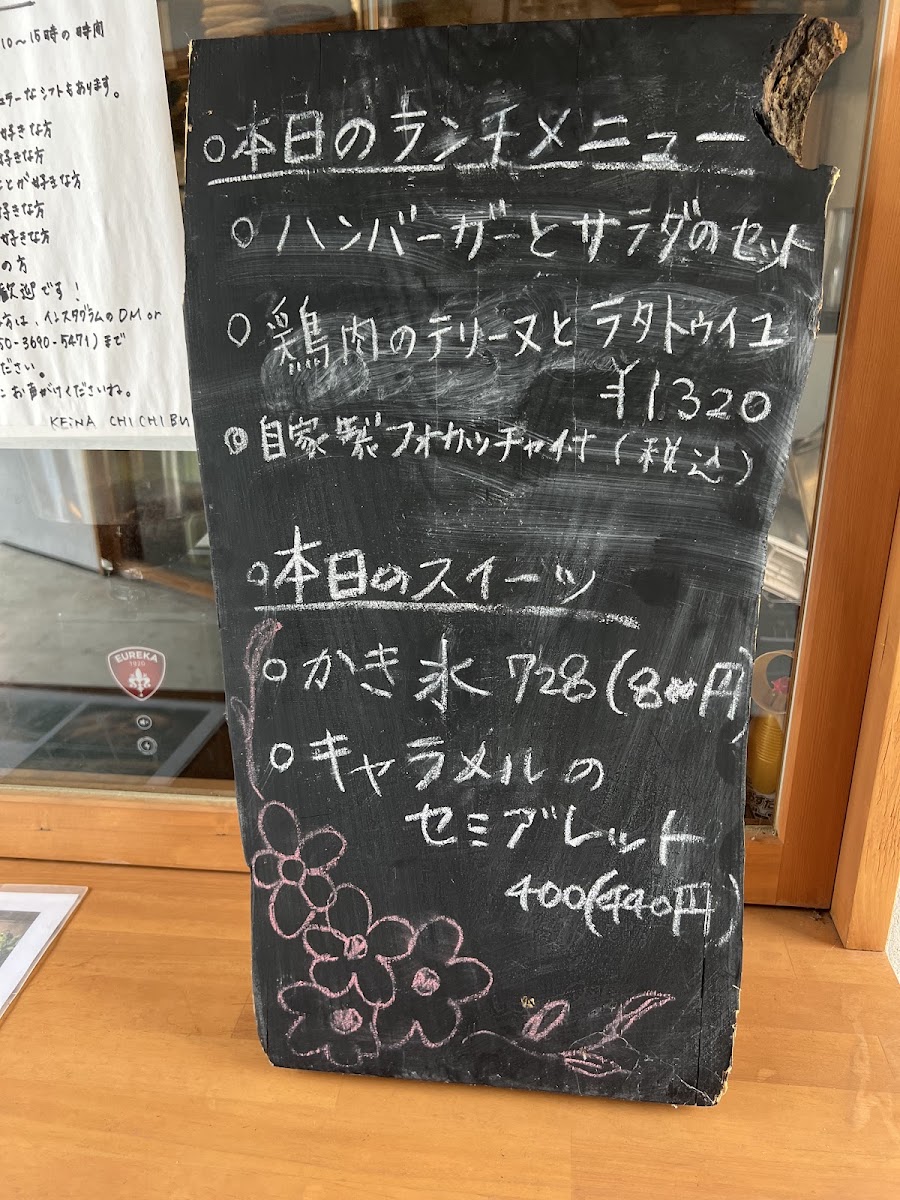 10～15時の時間
ュラーなシフトもあります。
好きな方
好きな方
ことが好きな方
好きな方
好きな方
の方
歓迎です！
方は、インスタグラムのDM or
50-3690-5471）まで
ださい。
お声がけくださいね。
KEiNA CHICHIBU
○本日のランチメニュー
○ハンバーガーとサラダのセット
○鶏肉のテリーヌとラタトゥイユ
¥1.320
◎自家製フォカッチャ付（税込）
○本日のスイーツ
○かき氷 728(800円)
○キャラメルの
セミブレット
400(440円)
EUREKA
1920